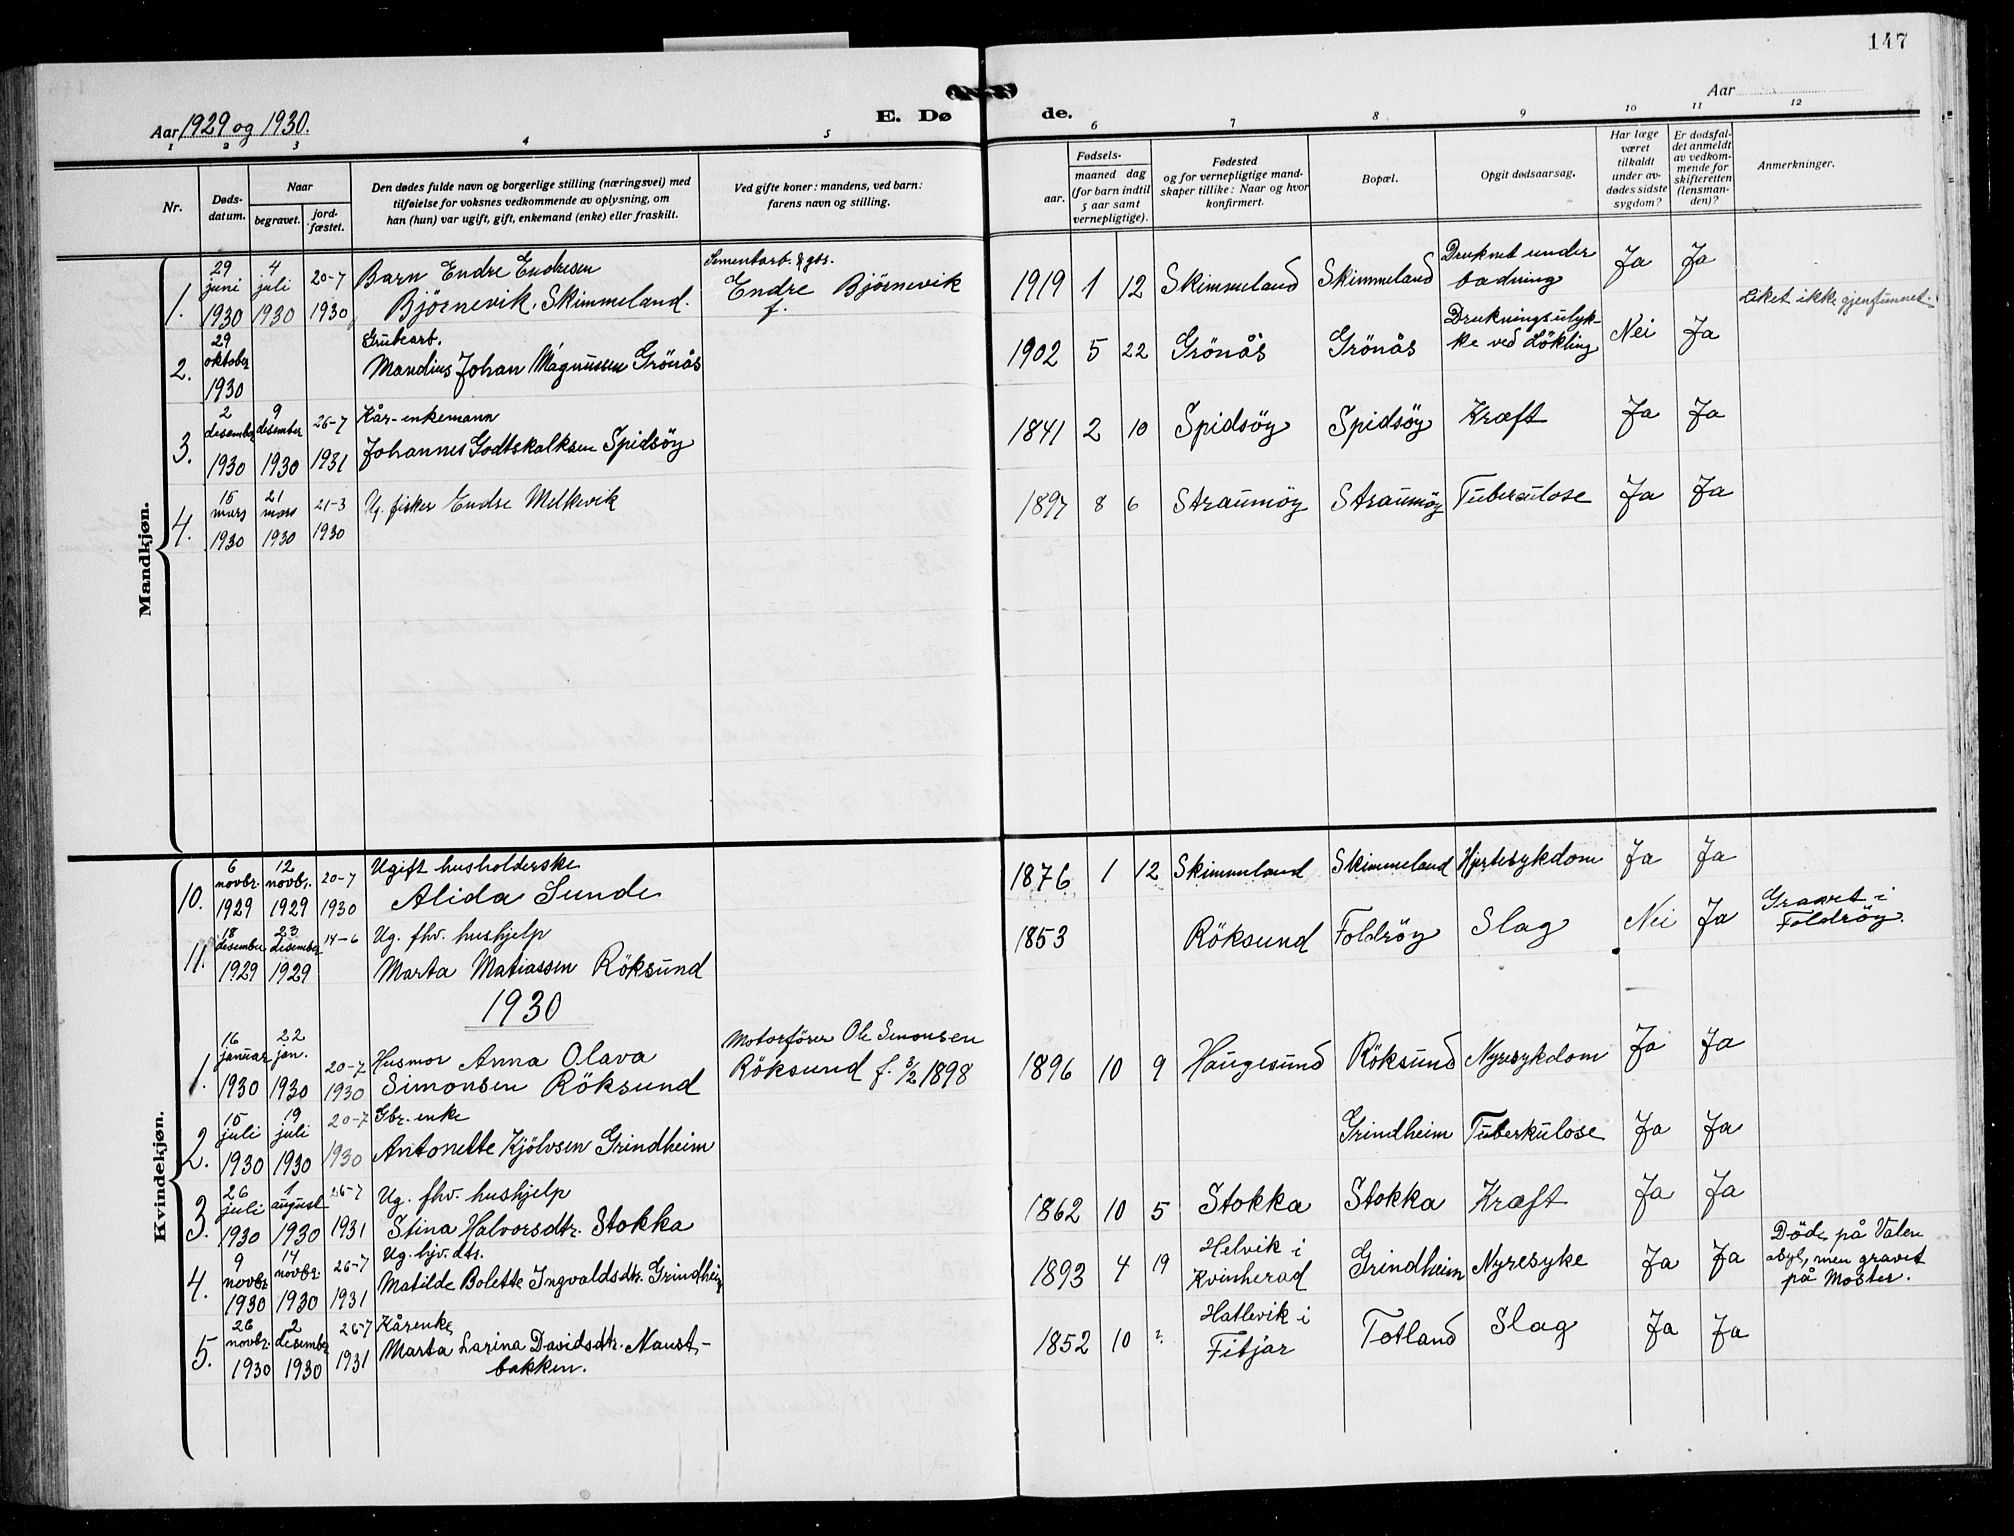 147
Aar 1929 og 1930.
E. Dø
de.
Aar
1 2 3 4 5 6 7 8 9 10 11 12
Nr.
Døds-
datum.
Naar
begravet.
jord-
fæstet.
Den dødes fulde navn og borgerlige stilling (næringsvei) med
tilføielse for voksnes vedkommende av oplysning, om
han (hun) var ugift, gift, enkemand (enke) eller fraskilt.
Ved gifte koner: mandens, ved barn:
farens navn og stilling.
Fødsels-
aar.
maaned dag
(for barn indtil
5 aar samt
vernepligtige).
Fødested
og for vernepligtige mand-
skaper tillike: Naar og hvor
konfirmert.
Bopæl.
Opgit dødsaarsag.
Har læge
været
tilkaldt
under av-
dødes sidste
sygdom?
Er dødsfal-
det anmeldt
av vedkom-
mende for
skifteretten
(lensman-
den)?
Anmerkninger.
Mandkjøn.
1. 29 juni 1930 4 juli 1930 20-7 1930 Barn Endre Endresen
Bjørnevik, Skimmeland. Sementarb. & gbr.
Endre Bjørnevik
f.
1919 1 12 Skimmeland Skimmeland Druknet under
badning Ja Ja
2. 29 oktober 1930 Grubearb.
Mandius Johan Magnussen Grönås
1902 5 22 Grönås Grönås Drukningsulyk-
ke ved Lökling Nei Ja Liket ikke gjenfunnet.
3. 2 desember 1930 9 desember 1930 26-7 1931 Kår-enkemann
Johannes Godtskalksen Spidsöy
1841 2 10 Spidsöy Spidsöy Kræft Ja Ja
4. 15 mars 1930 21 mars 1930 21-3 1930 Ug. fisker Endre Melkevik
1897 8 6 Straumöy Straumöy Tuberkulose Ja Ja
Kvindekjøn.
10. 6 novbr. 1929 12 novbr. 1929 20-7 1930 Ugift husholderske
Alida Sunde
1876 1 12 Skimmeland Skimmeland Hjertesykdom Ja Ja
11. 18 desember 1929 23 desember 1929 14-6 Ug. fhv. hushjelp
Marta Matiassen Röksund
1853 Röksund Foldröy Slag Nei Ja Gravet i
Foldröy.
1930
1. 16 januar 1930 22 jan. 1930 20-7 1930 Husmor Anna Olava
Simonsen Röksund Motorförer Ole Simonsen
Röksund f. 3/2 1898
1896 10 9 Haugesund Röksund Nyresykdom Ja Ja
2. 15 juli 1930 19 juli 1930 20-7 1930 Gbr. enke
Antonette Kjölvsen Grindheim
Grindheim Tuberkulose Ja Ja
3. 26 juli 1930 1 august 1930 26-7 1931 Ug. fhv. hushjelp
Stina Halvorsdtr. Stokka
1862 10 5 Stokka Stokka Kræft Ja Ja
4. 9 novbr. 1930 14 novbr. 1930 26-7 1931 Ug. hjv. dtr.
Matilde Bolette Ingvaldsdtr. Grindheim
1893 4 19 Helvik i
Kvinherad Grindheim Nyresyke Ja Ja Döde på Valen
asyl, men gravet
på Moster.
5. 26 novbr. 1930 2 desember 1930 26-7 1931 Kårenke
Marta Larina Davidsdtr. Naust-
bakken.
1852 10 ? Hatlevik i
Fitjar Totland Slag Ja Ja